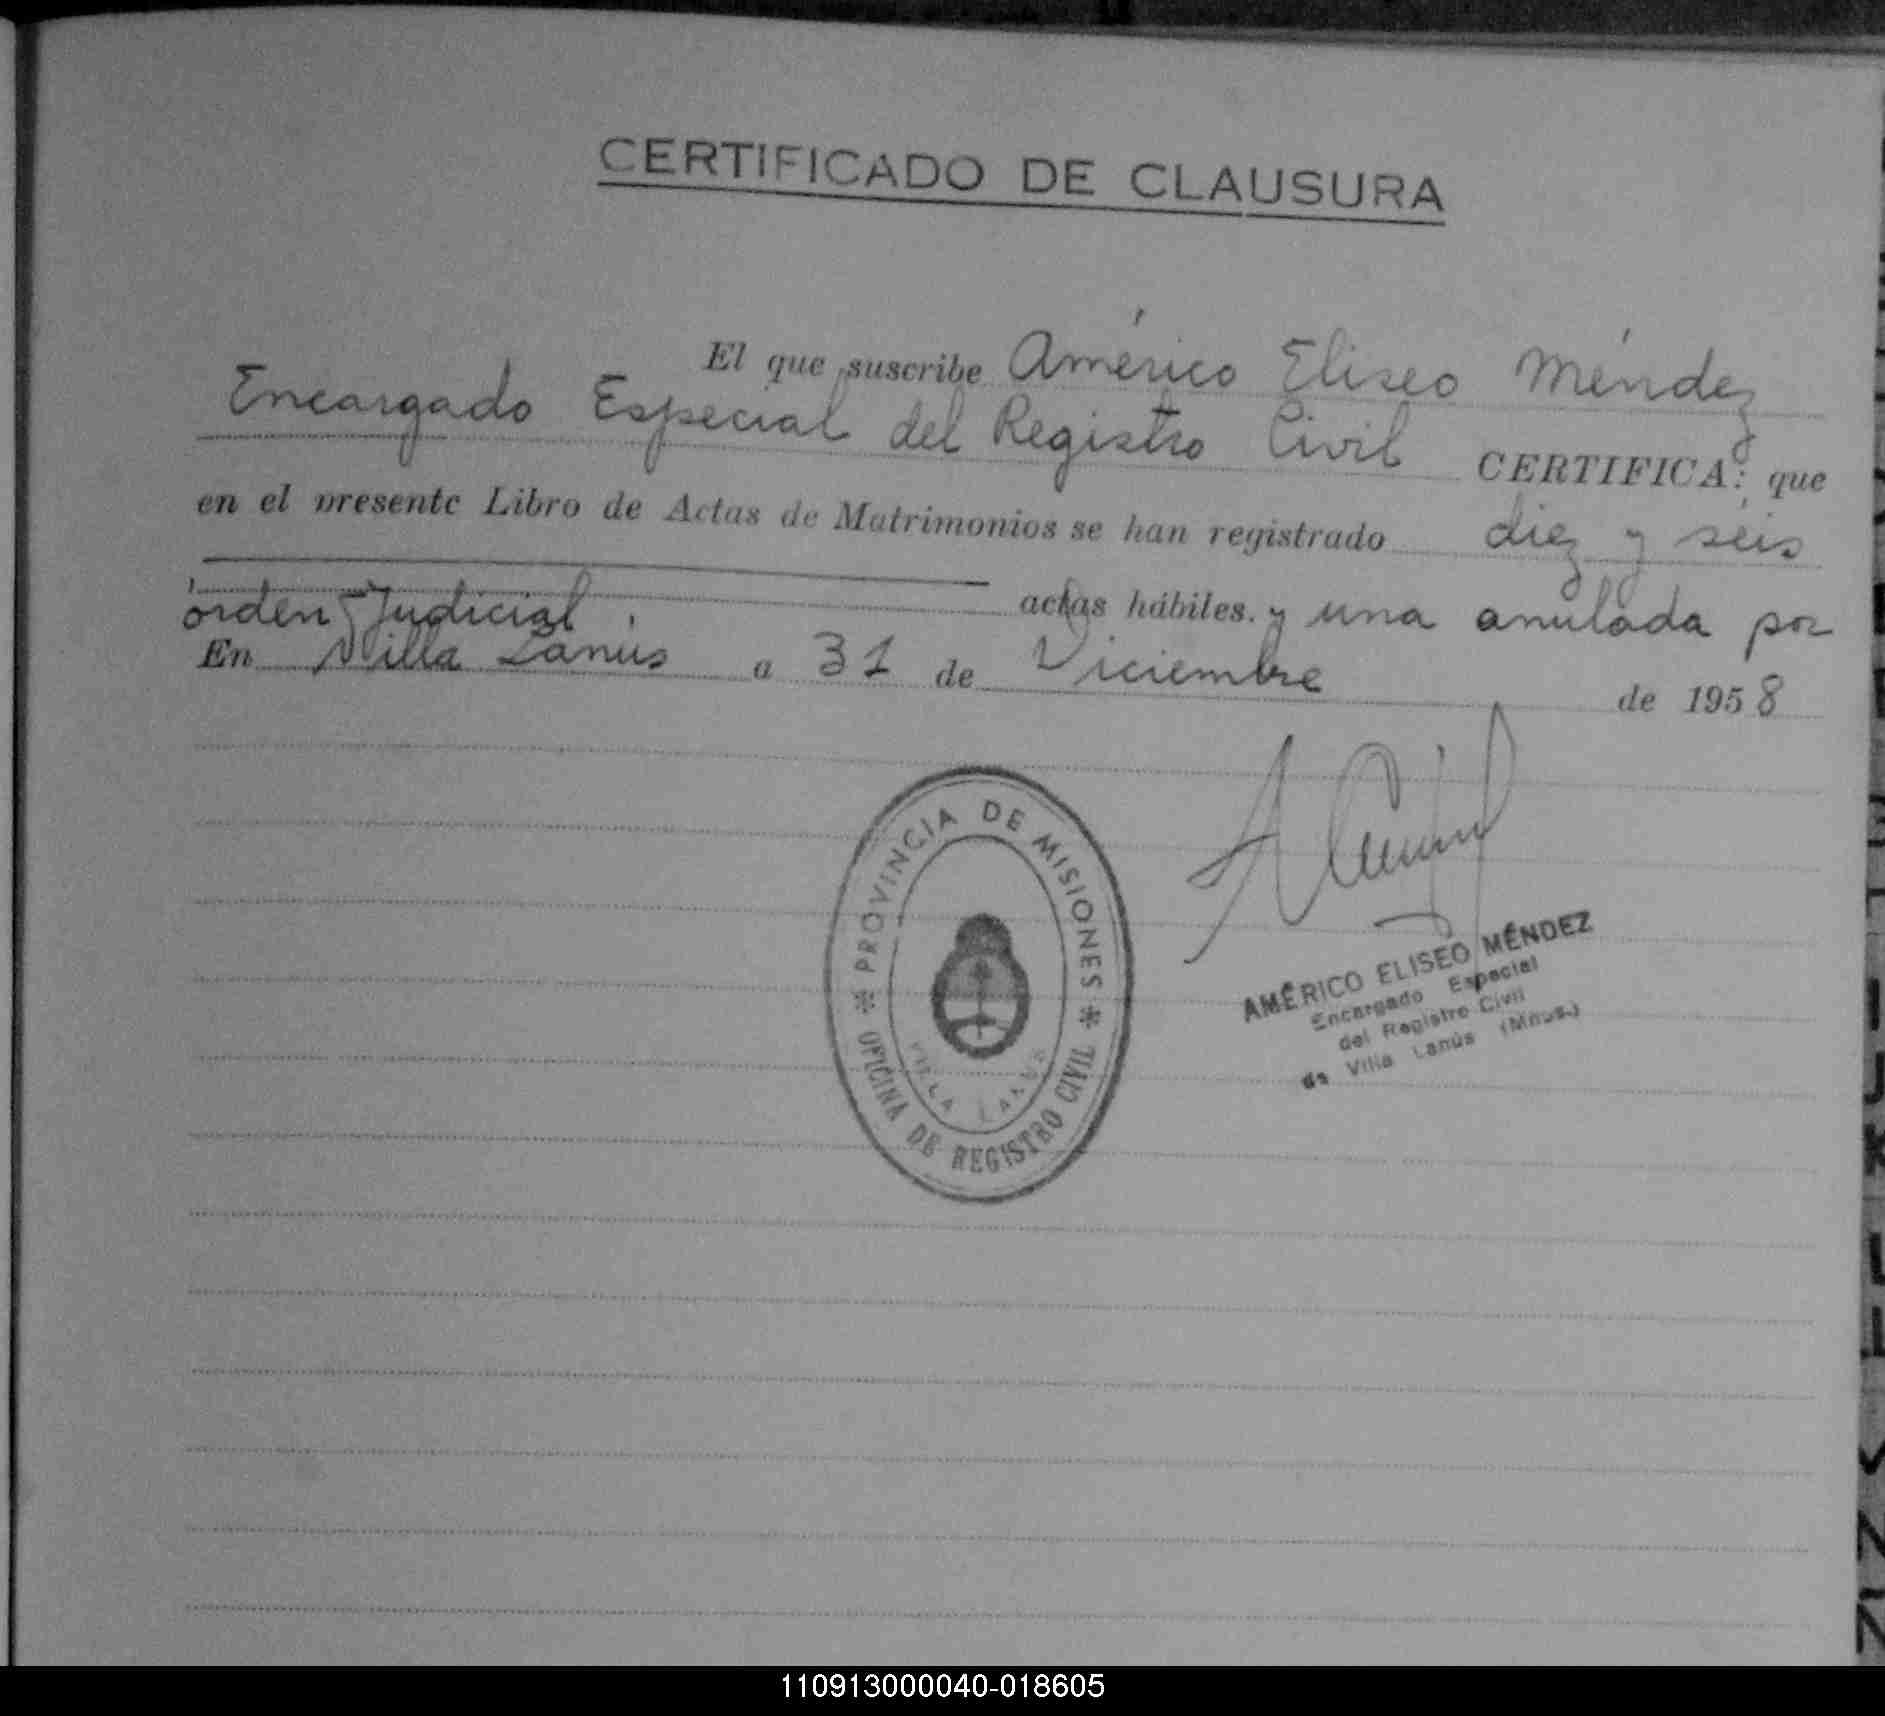 CERTIFICADO DE CLAUSURA
El que suscribe Américo Eliseo Méndez
Encargado Especial del Registro Civil CERTIFICA: que
en el presente Libro de Actas de Matrimonios se han registrado diez y séis
actas hábiles. y una anulada por
orden Judicial.
En Villa Lanús a 31 de Diciembre de 1958
PROVINCIA DE MISIONES
OFICINA DE REGISTRO CIVIL
VILLA LANUS
AMÉRICO ELISEO MÉNDEZ
Encargado Especial
del Registro Civil
de Villa Lanús (Mnes.)
110913000040-018605